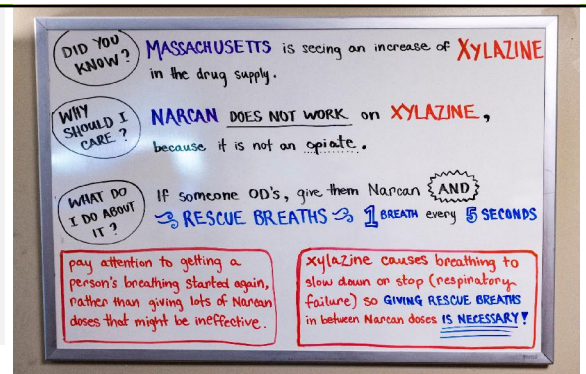 DID YOU
KNOW?
MASSACHUSETTS is seeing an increase of XYLAZINE
in the drug supply.
WHY
SHOULD I
CARE?
NARCAN DOES NOT WORK on XYLAZINE,
because it is not an opiate.
WHAT DO
I DO ABOUT
IT?
If someone OD's, give them Narcan AND
RESCUE BREATHS 1 BREATH every 5 SECONDS
pay attention to getting a
person's breathing started again,
rather than giving lots of Narcan
doses that might be ineffective.
xylazine causes breathing to
slow down or stop (respiratory
failure) so GIVING RESCUE BREATHS
in between Narcan doses IS NECESSARY!